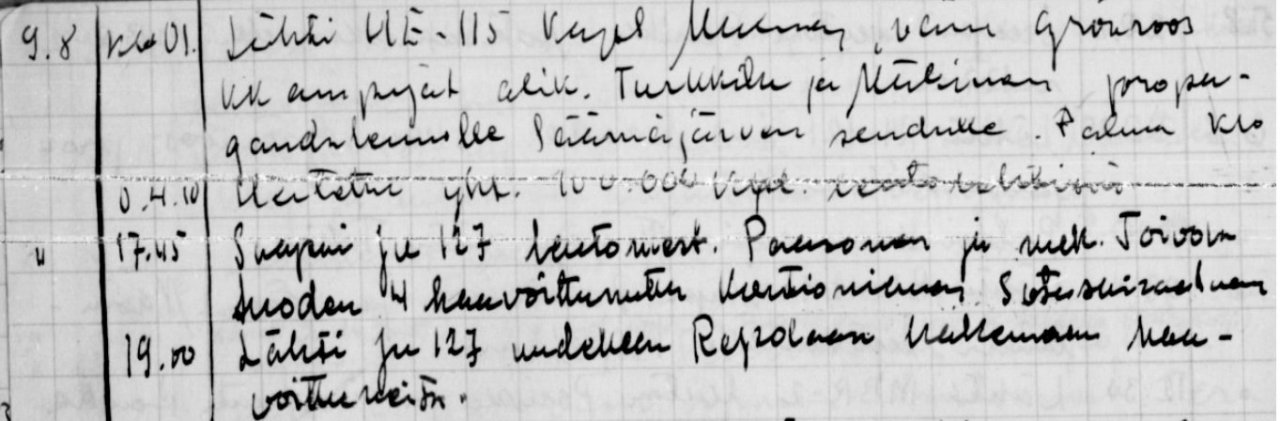 9.8 klo 01. Lähti HE-115 Kapt Meemer, vänr Grönroos
KK ampujat alik. Turkkila ja Miikman propa-
gandalennolle Säämäjärven seudulle. Paluu klo
0.4.10 Heitettu yht. 100.000 kpl.
" 17.45 Saapui Ju 127 lentomest. Paasonen ja mek. Toivola
tuoden 4 haavoittunutta Kontioniemen Sotasairaalaan
19.00 Lähti Ju 127 uudelleen Repolaan hakemaan haa-
voittuneita.